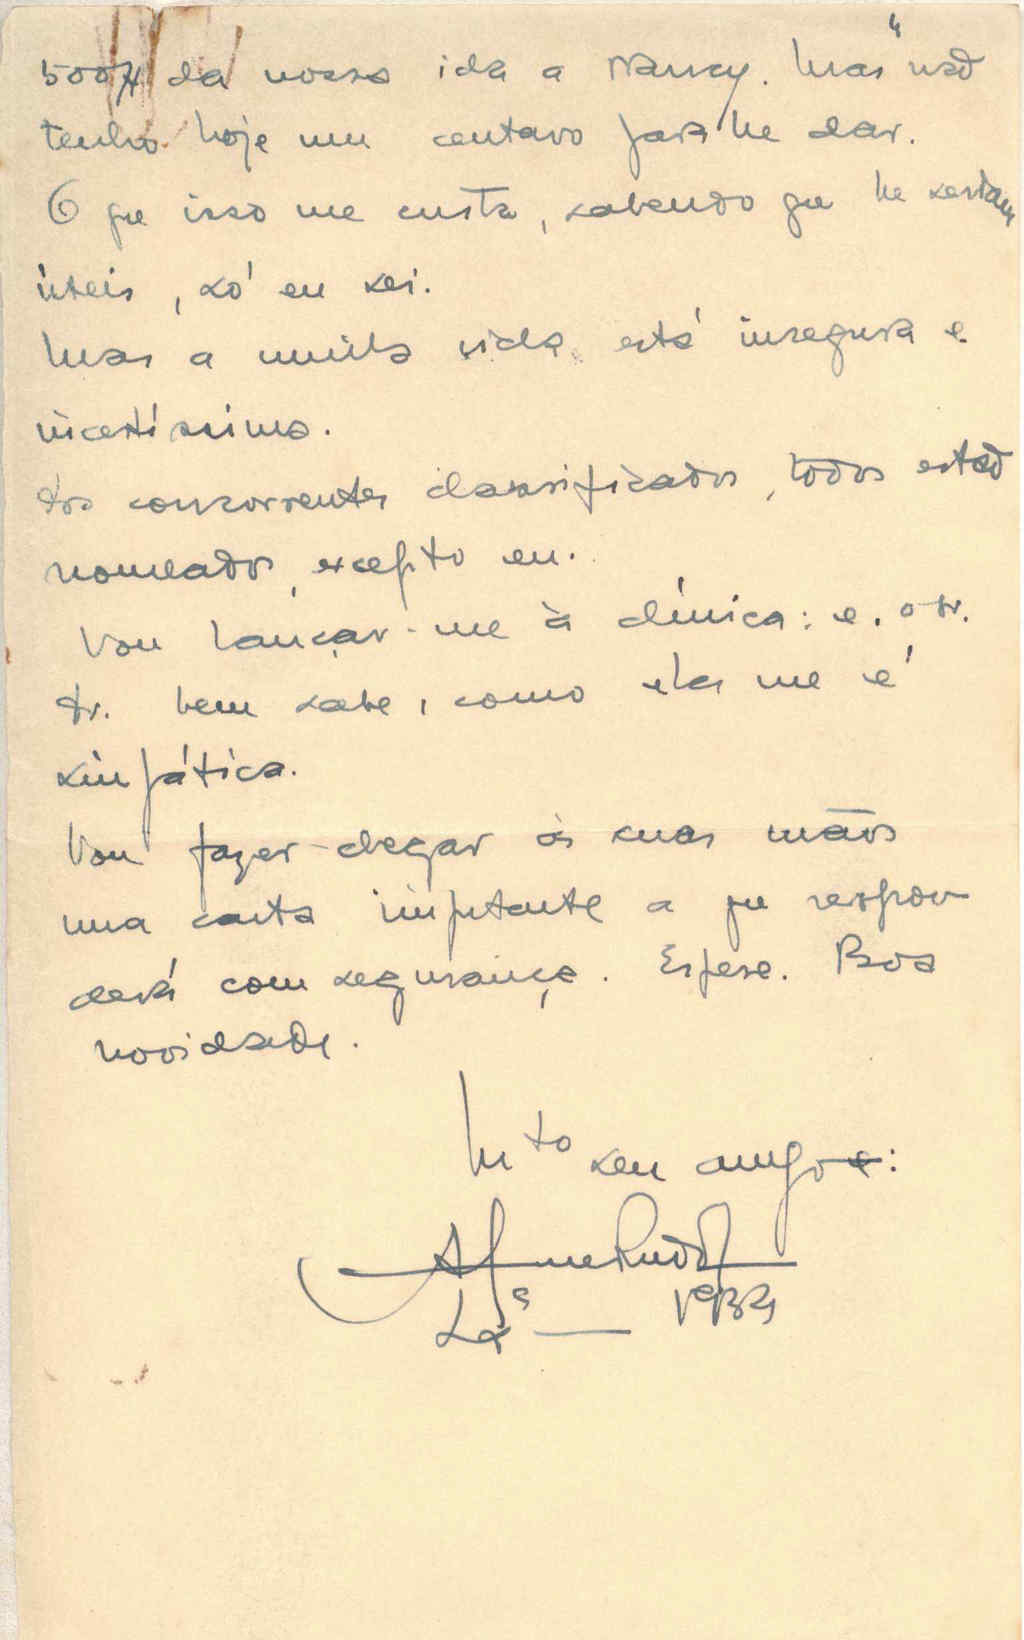 500$ da nossa ida a Nancy. Mas não
tenho hoje um centavo para lhe dar.
O que isso me custa, sabendo que lhe seriam
úteis, só eu sei.
Mas a minha vida está insegura e
incertíssima.
dos concorrentes classificados, todos estão
nomeados, excepto eu.
Vou lançar-me à clínica: e, o sr.
dr. bem sabe, como ela me é
simpática.
Vou fazer chegar às suas mãos
uma carta importante a que respon
derá com segurança. Espere. Boa
novidade.
Mto seu amigo e:
Lxª — 1939